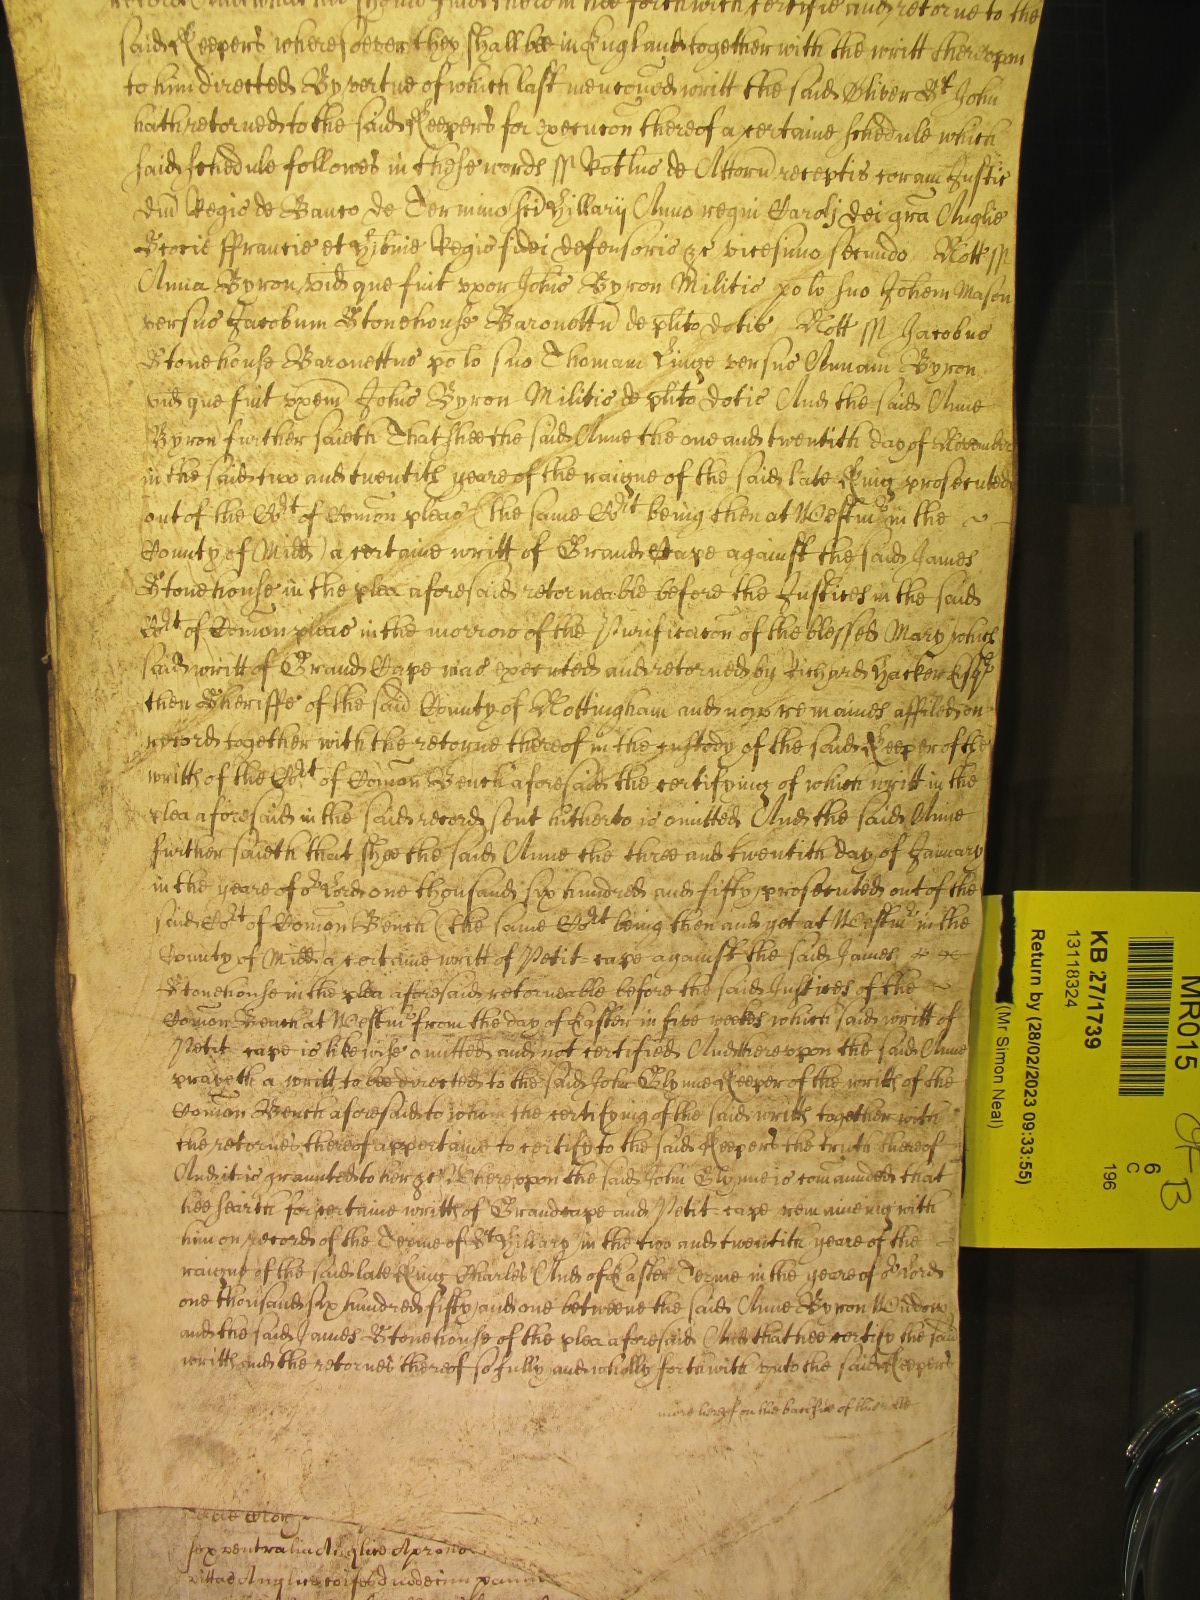 should hee forthwith certifie and retorne to the
said Keepers wheresoever they shall bee in England together with the writt thereupon
to him directed By vertue of which last menconed writt the said Oliver St John
hath retorned to the said Keepers for execucon thereof a certaine schedule which
said schedule followes in these words ss Rotlus de Attorn receptis coram Justic
Dni Regis de Banco de Termino sci Hillarij Anno regni Caroli dei gra Anglie
Scocie ffrancie et Hibnie Regis fidei defensoris &c vicesimo secundo Nott ss
Anna Byron vid que fuit uxor Johis Byron Militis po lo suo Johem Mason
versus Jacobum Stonehouse Baronettu de plito dotis Nott ss Jacobus
Stonehouse Baronettus po lo suo Thomam Kinge versus Annam Byron
vid que fuit uxem Johis Byron Militis de plito dotis And the said Anne
Byron further saieth That shee the said Anne the one and twentith day of November
in the said two and twentith yeare of the raigne of the said late King prosecuted
out of the Cort of Comon pleas (the same Cort being then at Westmr in the
County of Midd) a certaine writt of Grand Cape against the said James
Stonehouse in the plea aforesaid retorneable before the Justices in the said
Cort of Comon pleas in the morrow of the Purificacon of the blessed Mary which
said writt of Grand Cape was executed and retorned by Richard Hacker Esqr
then Sheriffe of the said County of Nottingham and now remaines affiled on
record together with the retorne thereof in the custody of the said Keeper of the
writts of the Cort of Comon Bench aforesaid the certifying of which writt in the
plea aforesaid in the said record sent hitherto is omitted And the said Anne
further saieth that shee the said Anne the three and twentith day of January
in the yeare of or Lord one thousand six hundred and fifty prosecuted out of the
said Cort of Comon Bench (the same Cort being then and yet at Westmr in the
County of Midd) a certaine writt of Petit cape against the said James
Stonehouse in the plea aforesaid retorneable before the said Justices of the
Comon Bench at Westmr from the day of Easter in five weekes which said writt of
Petit cape is likewise omitted and not certified And thereuppon the said Anne
prayeth a writt to bee directed to the said John Glynne Keeper of the writts of the
Comon Bench aforesaid to whom the certifying of the said writts together with
the retornes thereof appertaine to certify to the said Keepers the truth thereof
And it is graunted to her &c Whereuppon the said John Glynne is comaunded that
hee search for certaine writts of Grand cape and Petit cape remaineing with
him on record of the Terme of St Hillary in the two and twentith yeare of the
raigne of the said late King Charles And of Easter Terme in the yeare of or Lord
one thousand six hundred fifty and one betweene the said Anne Byron Widdow
and the said James Stonehouse of the plea aforesaid And that hee certify the said
writts and the retornes thereof so fully and wholly forthwith unto the said Keepers
more hereof on the backside of this rolle
sex ventralia Anglice Aprons
vittas Anglice coifes duodecim
MR015
KB 27/1739
13118324
Return by (28/02/2023 09:33:55)
(Mr Simon Neal)
6
C
196